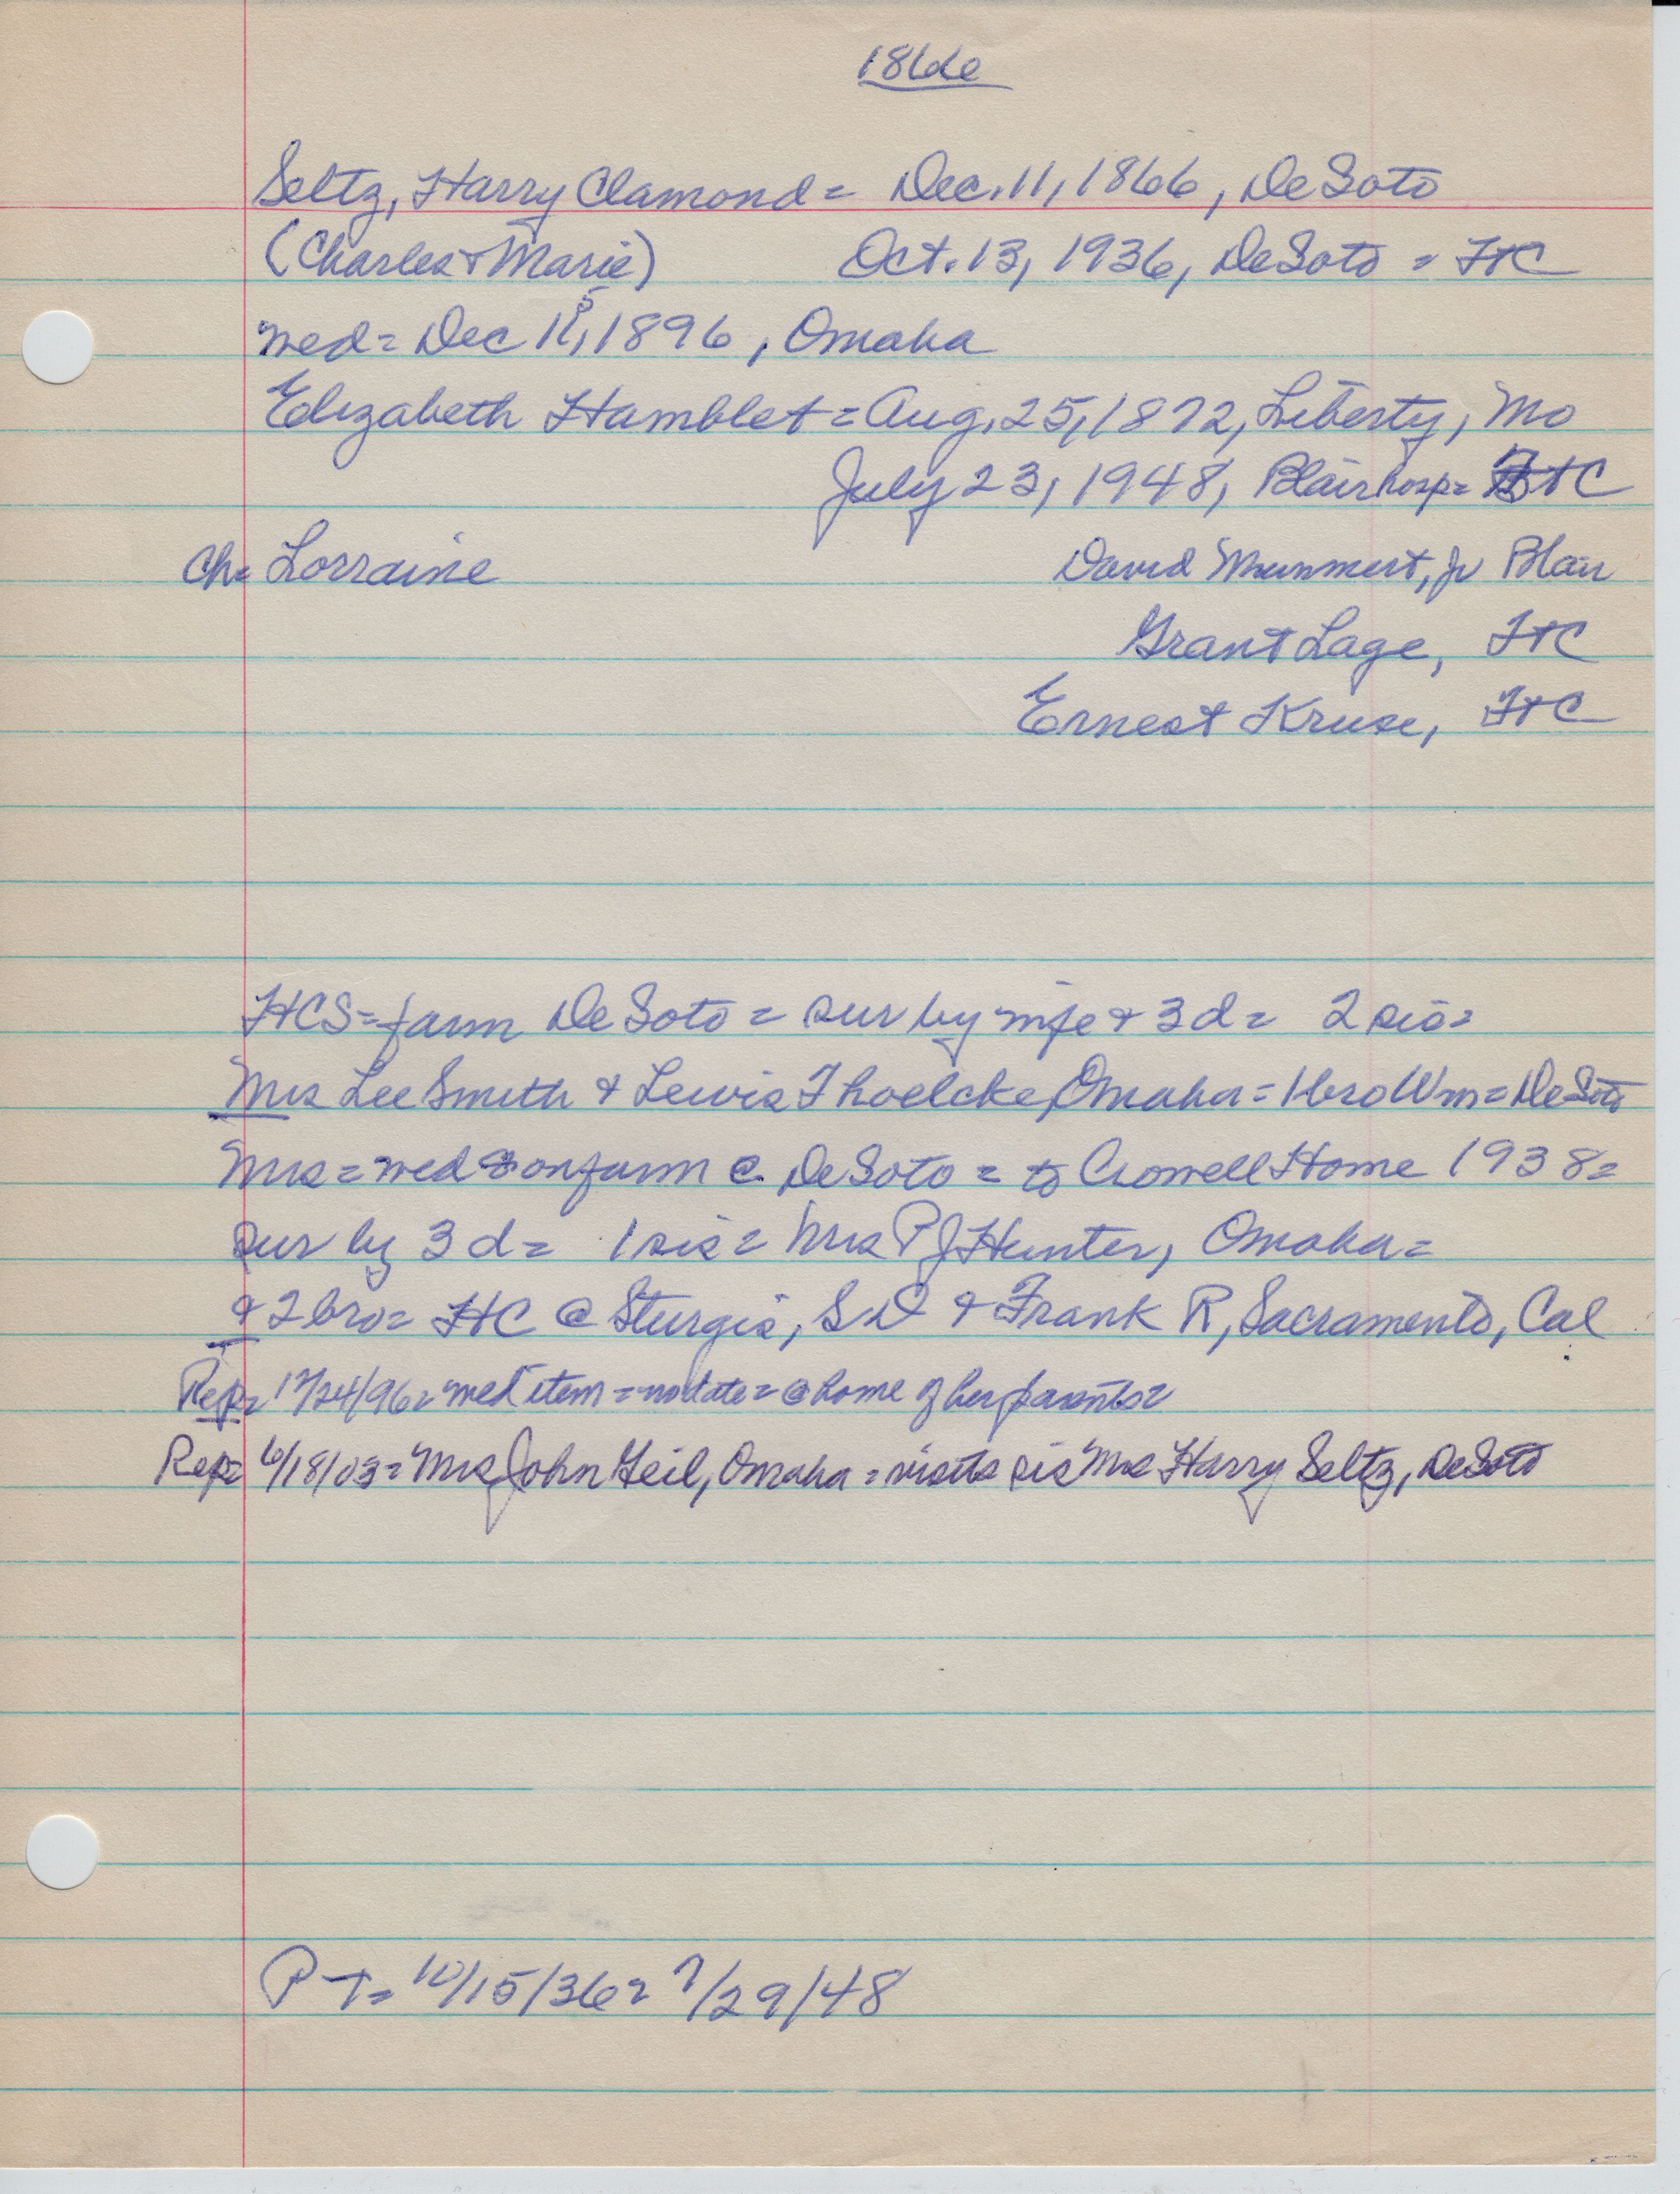 186de
Seltz, Harry Clamond = Dec. 11, 1866, DeSoto
(Charles & Marie) Oct. 13, 1936, DeSoto = FtC
wed = Dec 15, 1896, Omaha
Elizabeth Hamblet = Aug. 25, 1872, Liberty, Mo
July 23, 1948, Blair hosp = FtC
Ch = Lorraine David Mummert, Jr Blair
Grant Lage, FtC
Ernest Kruse, FtC
HCS = farm DeSoto = sur by wife & 3 d = 2 sis =
Mrs Lee Smith & Lewis Thoelcke, Omaha = 1 bro Wm = DeSoto
Mrs = wed & on farm @ DeSoto = to Crowell Home 1938 =
sur by 3 d = 1 sis = Mrs P J Hunter, Omaha =
& 2 bro = HC @ Sturgis, S D & Frank R, Sacramento, Cal
Rep = 12/24/96 = wed item = no date = @ home of her parents =
Rep = 6/18/03 = Mrs John Geil, Omaha = visits sis Mrs Harry Seltz, DeSoto
P T = 10/15/36 = 7/29/48